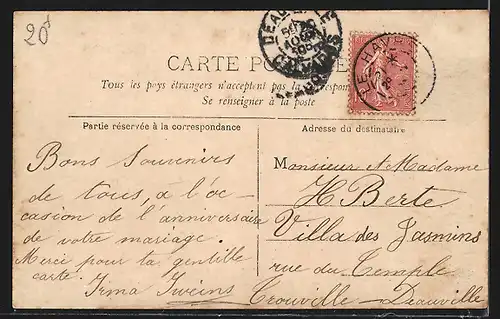 20
DEAUVILLE
CARTE POSTALE
LE HAVRE
Tous les pays étrangers n'acceptent pas la correspon
Se renseigner à la poste
Partie réservée à la correspondance
Adresse du destinataire
Bons Souvenirs
de tous, à l'oc-
casion de l'anniversaire
de votre mariage.
Merci pour ta gentille
carte. Irma Iweins
Monsieur et Madame
H Berte
Villa des Jasmins
rue du Temple
Trouville - Deauville